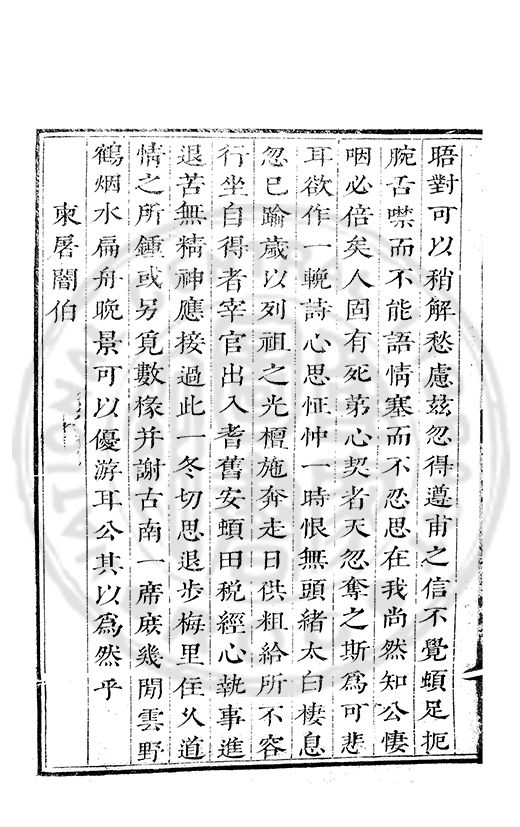 晤對可以稍解愁慮茲忽得遵甫之信不覺頓足扼
腕舌噤而不能語情塞而不忍思在我尚然知公悽
咽必倍矣人固有死苐心契者天忽奪之斯為可悲
耳欲作一輓詩心思怔忡一時恨無頭緒太白棲息
忽已踰歲以列祖之光檀施奔走日供粗給所不容
行坐自得者宰官出入耆舊安頓田稅經心執事進
退苦無精神應接過此一冬切思退步梅里住久道
情之所鍾或另覓數椽并謝古南一席庻幾閒雲野
鶴烟水扁舟晚景可以優游耳公其以為然乎
柬屠闇伯